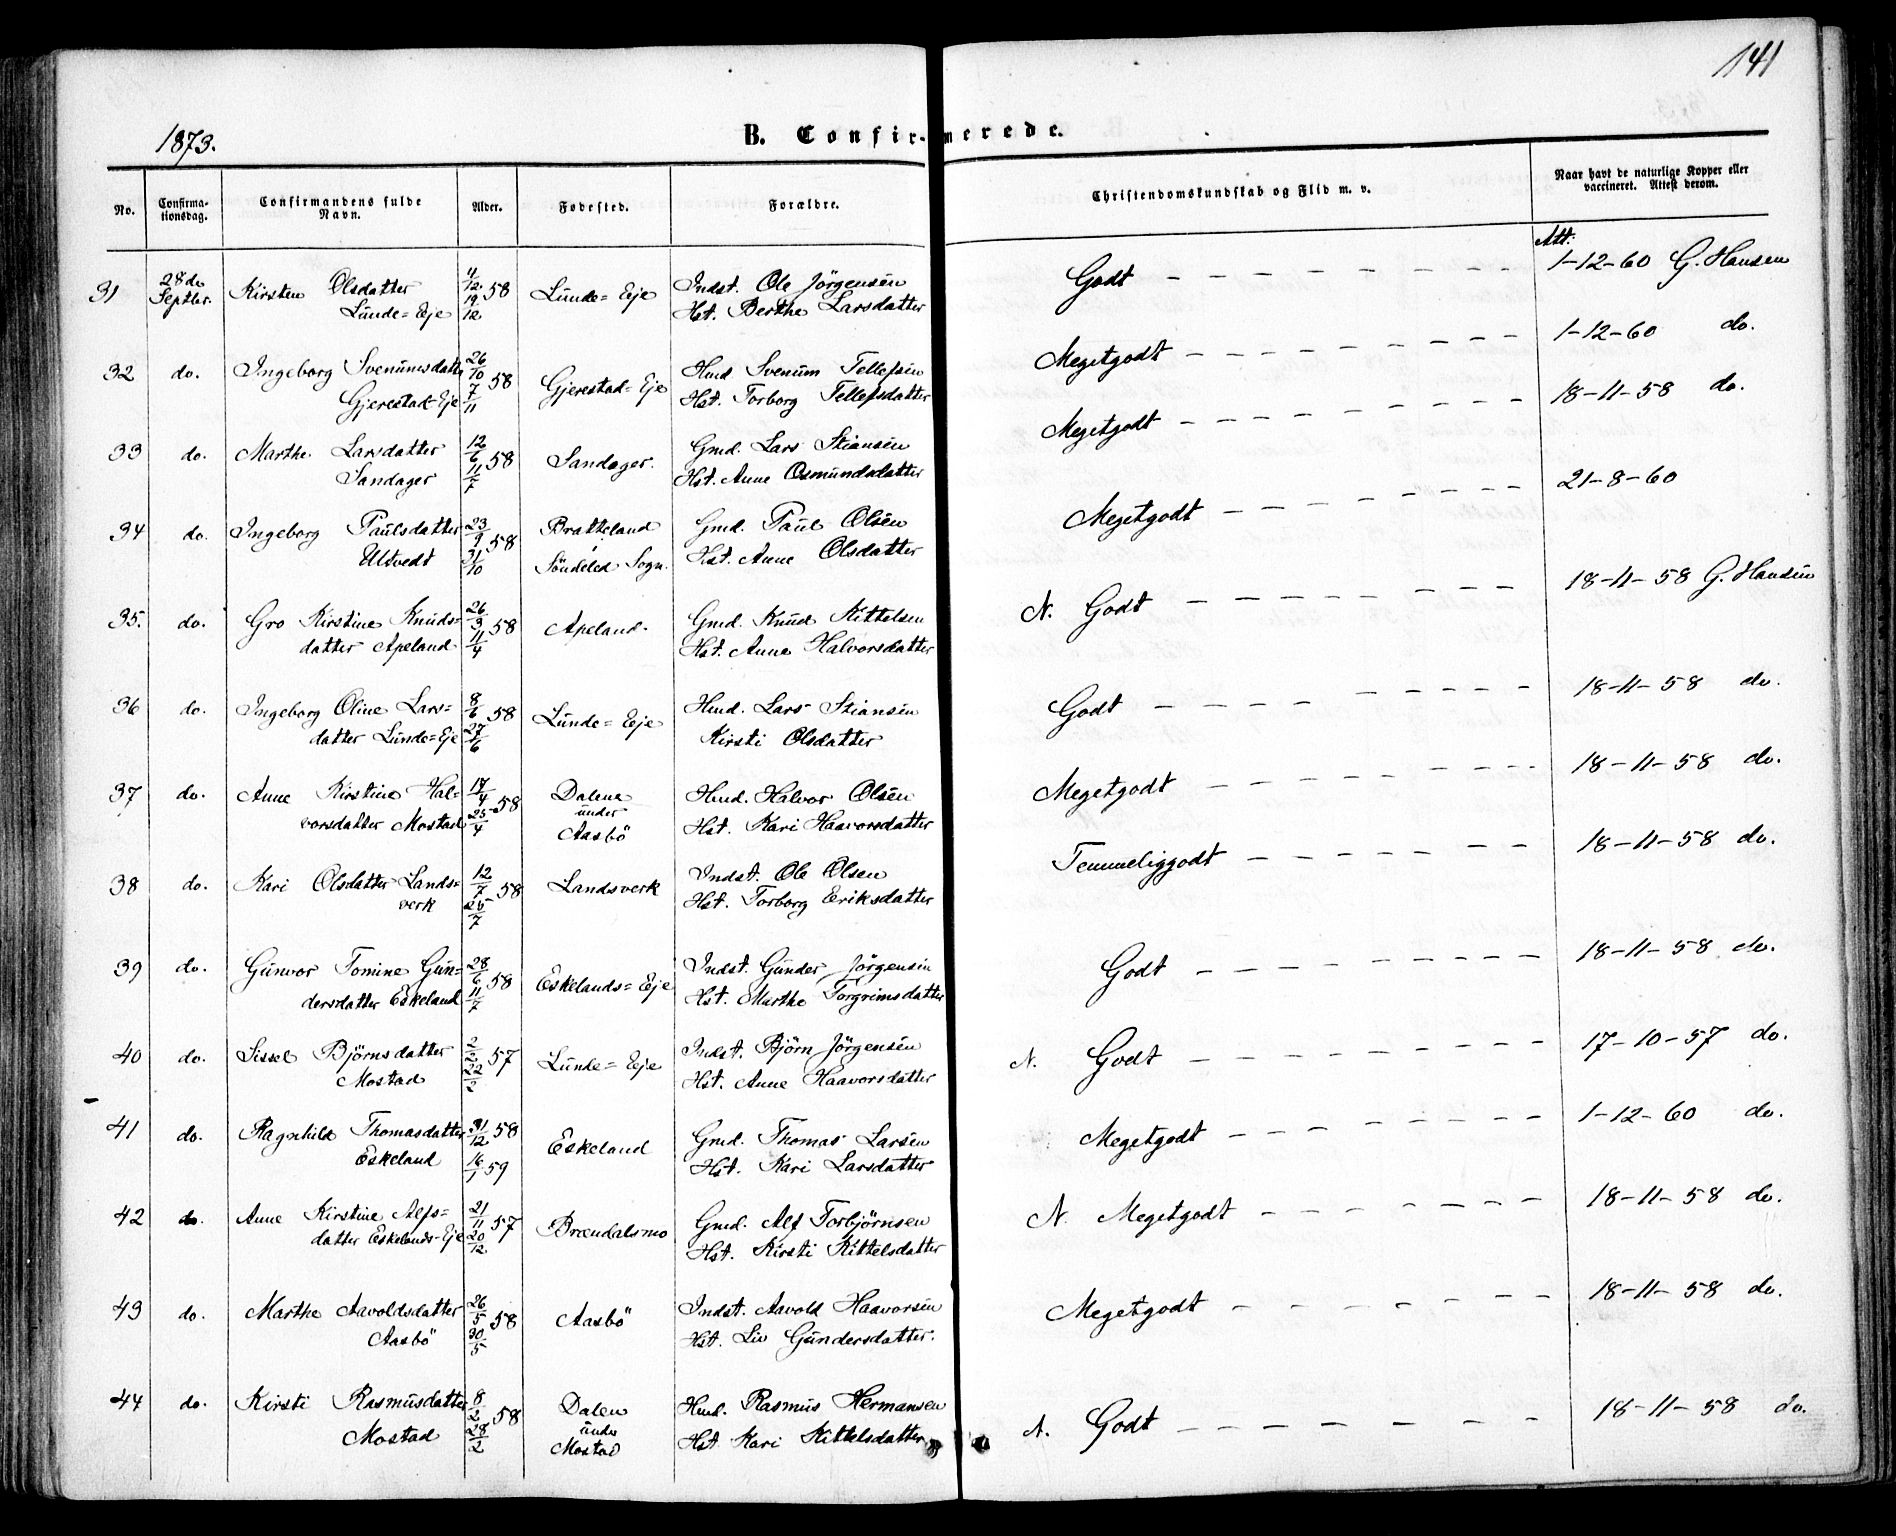 141
1873.
B. Confirmerede.
No.
Confirma-
tionsdag.
Confirmandens fulde
Navn.
Alder.
Fødested.
Forældre.
Christendomskundskab og Flid m. v.
Naar havt de naturlige Kopper eller
vaccineret. Attest derom.
31 28de Septbr. Kirsten Olsdatter 4/12 58 Lunde=Eje Indst. Ole Jörgensen Godt Att: 1-12-60 G. Hansen
Lunde=Eje 19/12 Hst. Berthe Larsdatter
32 do. Ingeborg Svenumsdatter 26/10 58 Gjerestad=Eje Hmd Svenum Tellefsen Megetgodt 1-12-60 do.
Gjerestad-Eje 7/11 Hst. Torborg Tellefsdatter
33 do. Marthe Larsdatter 12/6 58 Sandager. Gmd. Lars Stiansen Megetgodt 18-11-58 do.
Sandager 11/7 Hst. Anne Osmundsdatter
34 do. Ingeborg Paulsdatter 23/9 58 Bratteland Gmd. Paul Olsen Megetgodt 21-8-60
Ultvedt 31/10 Söndeled Sogn. Hst. Anne Olsdatter
35. do. Gro Kirstine Knuds= 26/3 58 Apeland. Gmd. Knud Kittelsen N. Godt 18-11-58 G. Hansen
datter Apeland 11/4 Hst. Anne Halvorsdatter
36 do. Ingeborg Oline Lars= 8/6 58 Lunde=Eje Hmd. Lars Stiansen Godt 18-11-58 do.
datter Lunde=Eje 27/6 Kirsti Olsdatter
37 do. Anne Kirstine Hal= 17/4 58 Dalene Hmd. Halvor Olsen Megetgodt 18-11-58 do.
vorsdatter Mostad 25/4 under Aasbö Hst. Kari Haavorsdatter
38 do. Kari Olsdatter Lands= 12/7 58 Landsverk Indst. Ole Olsen Temmeliggodt 18-11-58 do.
verk 25/7 Hst. Torborg Eriksdatter
39 do. Gunvor Tomine Gun= 28/6 58 Eskelands=Eje Indst. Gunder Jörgensen Godt 18-11-58 do.
dersdatter Eskeland 11/7 Hst. Marthe Torgrimsdatter
40 do. Sissel Björnsdatter 2/2 57 Lunde=Eje Indst. Björn Jörgensen N. Godt 17-10-57 do.
Mostad 22/2 Hst. Anne Haavorsdatter
41 do. Ragnhild Thomasdatter 31/12 58 Eskeland Gmd. Thomas Larsen Megetgodt 1-12-60 do.
Eskeland 16/1 59 Hst. Kari Larsdatter
42 do. Anne Kirstine Alfs= 21/11 57 Brændalsmo Gmd. Alf Torbjörnsen N. Megetgodt 18-11-58 do.
datter Eskelands-Eje 20/12. Hst. Kirsti Kittelsdatter
43 do. Marthe Aavoldsdatter 26/5 58 Aasbö Indst. Aavold Haavorsen Megetgodt 18-11-58 do.
Aasbö 30/5 Hst. Liv Gundersdatter.
44 do. Kirsti Rasmusdatter 8/2 58 Dalen Hmd. Rasmus Hermansen N. Godt 18-11-58 do.
Mostad 28/2 under Mostad Hst Kari Kittelsdatter